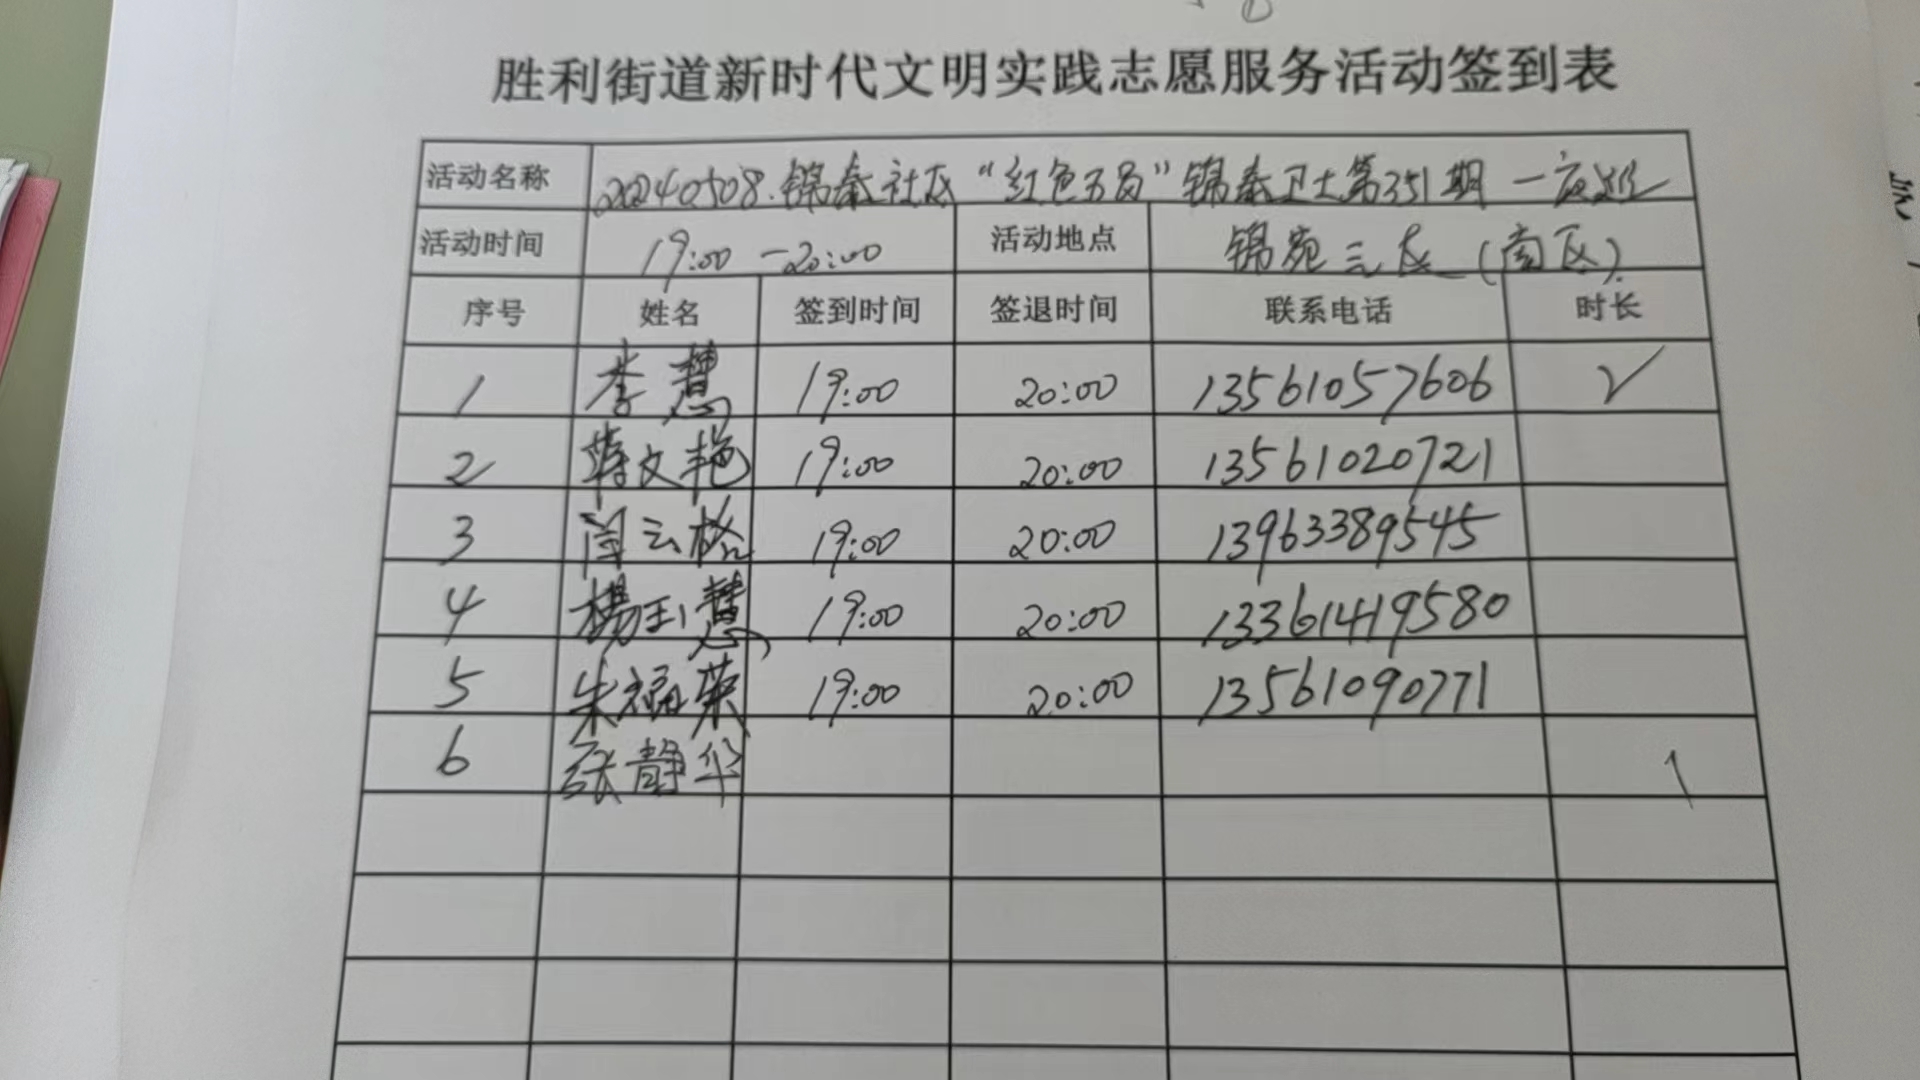 胜利街道新时代文明实践志愿服务活动签到表
活动名称 20240508.锦泰社区“红色五员”锦泰卫士第351期一夜巡
活动时间 19:00-20:00 活动地点 锦苑三区(南区)
序号 姓名 签到时间 签退时间 联系电话 时长
1 李慧 19:00 20:00 13561057606 ✓
2 蒋文艳 19:00 20:00 13561020721
3 闫云格 19:00 20:00 13963389545
4 杨玉慧 19:00 20:00 13361419580
5 朱福荣 19:00 20:00 13561090771
6 张静华